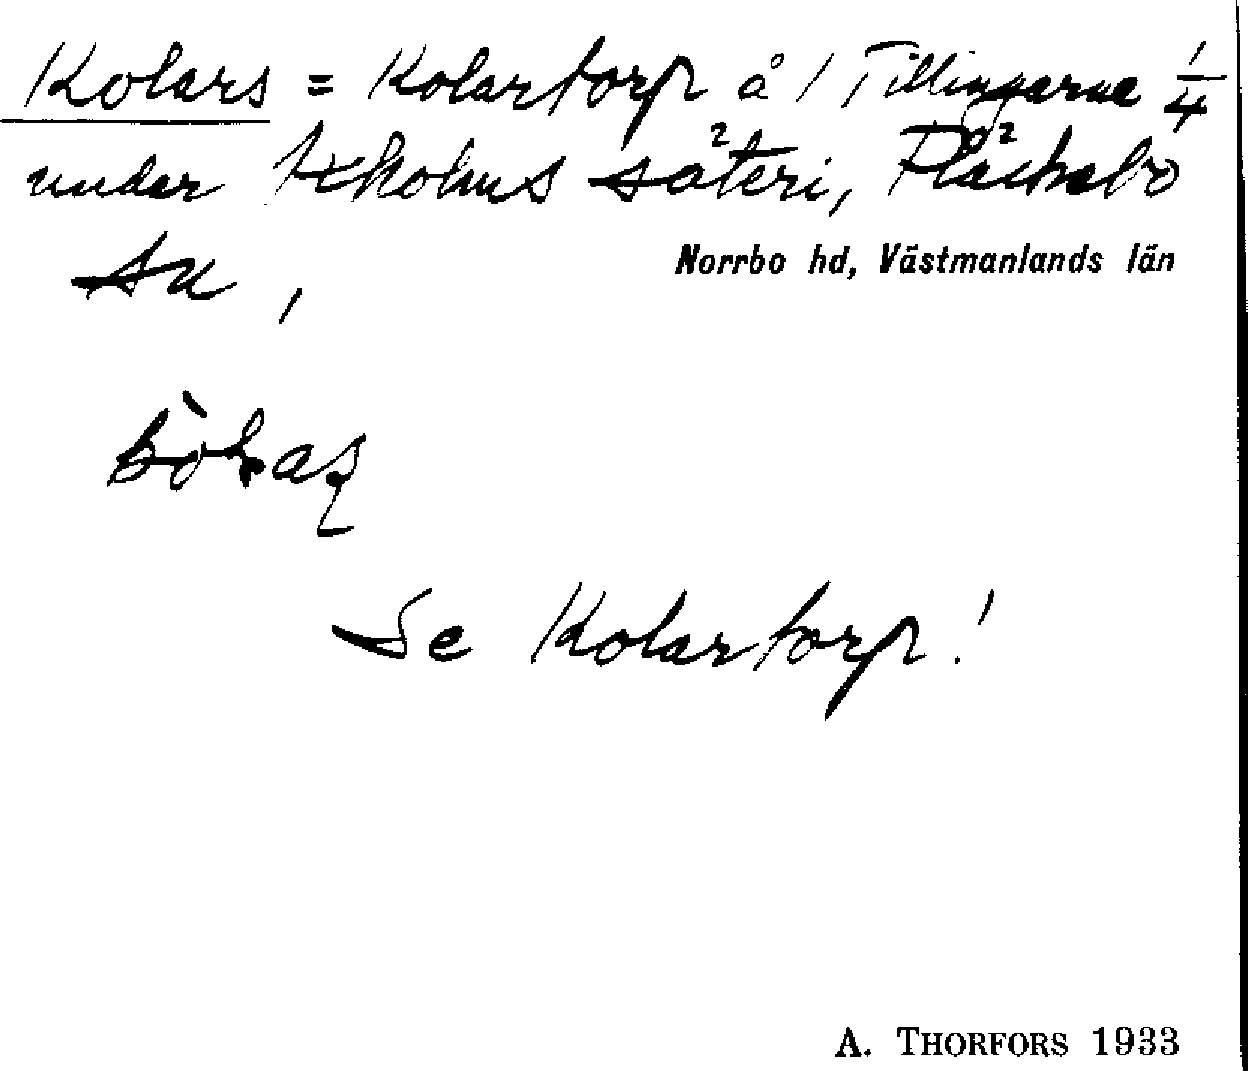 Kolars = Kolartorp å / Tillingarne 1/4
under Ekholms säteri, Fläckebo
sn,
Norrbo hd, Västmanlands län
Se Kolartorp!
A. THORFORS 1933